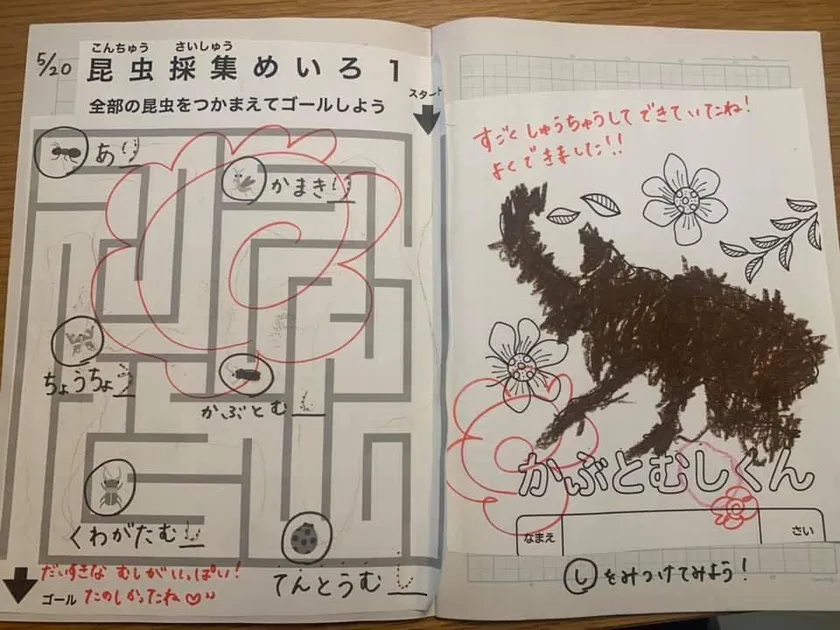 5/20
こんちゅう さいしゅう
昆虫採集めいろ 1
全部の昆虫をつかまえてゴールしよう
スタート
あり
かまきり
ちょうちょう
かぶとむし
くわがたむし
てんとうむし
だいすきな むしがいっぱい!
ゴール たのしかったね♡
すごく しゅうちゅうして できていたね!
よくできました!!
かぶとむしくん
なまえ さい
しをみつけてみよう!